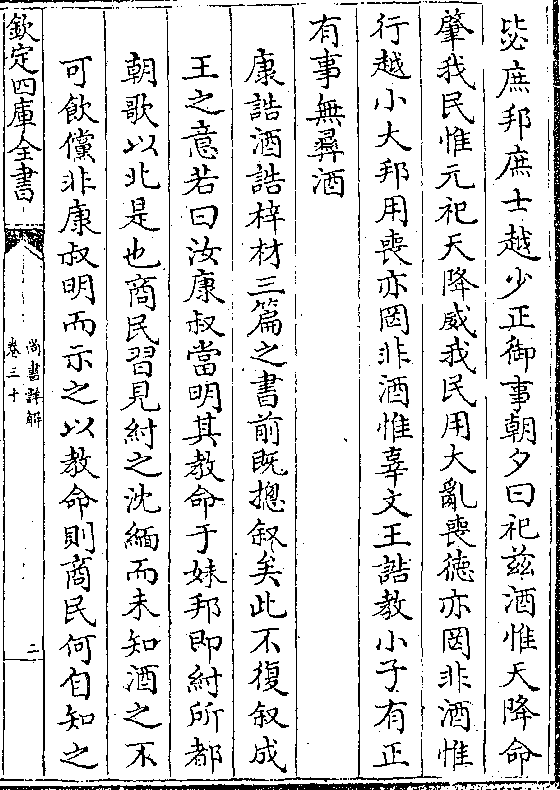 毖庶邦庶士越少正御事朝夕曰祀茲酒惟天降命
肇我民惟元祀天降威我民用大亂喪徳亦罔非酒惟
行越小大邦用喪亦罔非酒惟辜文王誥教小子有正
有事無彛酒
康誥酒誥梓材三篇之書前既摠叙矣此不復叙成
王之意若曰汝康叔當明其教命于妹邦即紂所都
朝歌以北是也商民習見紂之沈緬而未知酒之不
可飲儻非康叔明而示之以教命則商民何自知之
欽定四庫全書
尚書詳解
卷三十
二